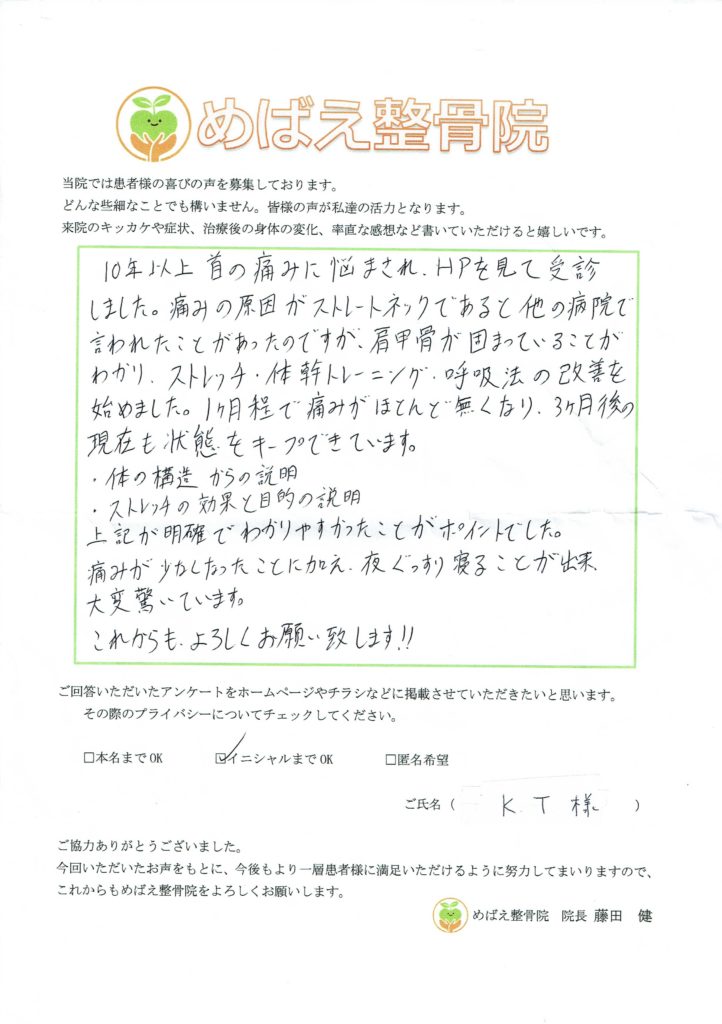 めばえ整骨院
当院では患者様の喜びの声を募集しております。
どんな些細なことでも構いません。皆様の声が私達の活力となります。
来院のキッカケや症状、治療後の身体の変化、率直な感想など書いていただけると嬉しいです。
10年以上首の痛みに悩まされ、HPを見て受診
しました。痛みの原因がストレートネックであると他の病院で
言われたことがあったのですが、肩甲骨が固まっていることが
わかり、ストレッチ・体幹トレーニング・呼吸法の改善を
始めました。1ヶ月程で痛みがほとんど無くなり、3ヶ月後の
現在も状態をキープできています。
・体の構造からの説明
・ストレッチの効果と目的の説明
上記が明確でわかりやすかったことがポイントでした。
痛みが少なくなったことに加え、夜ぐっすり寝ることが出来、
大変驚いています。
これからも、よろしくお願い致します!!
ご回答いただいたアンケートをホームページやチラシなどに掲載させていただきたいと思います。
その際のプライバシーについてチェックしてください。
□本名までOK ☑イニシャルまでOK □匿名希望
ご氏名( K.T 様 )
ご協力ありがとうございました。
今回いただいたお声をもとに、今後もより一層患者様に満足いただけるように努力してまいりますので、
これからもめばえ整骨院をよろしくお願いします。
めばえ整骨院 院長 藤田 健